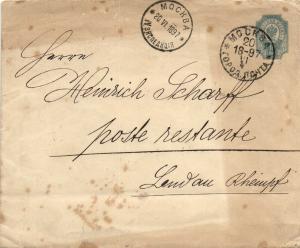 МОСКВА
МОСКВА
20
ГОРОД. ПОЧТА
Herrn
Heinrich Scharff
poste restante
Landau Rheinpf